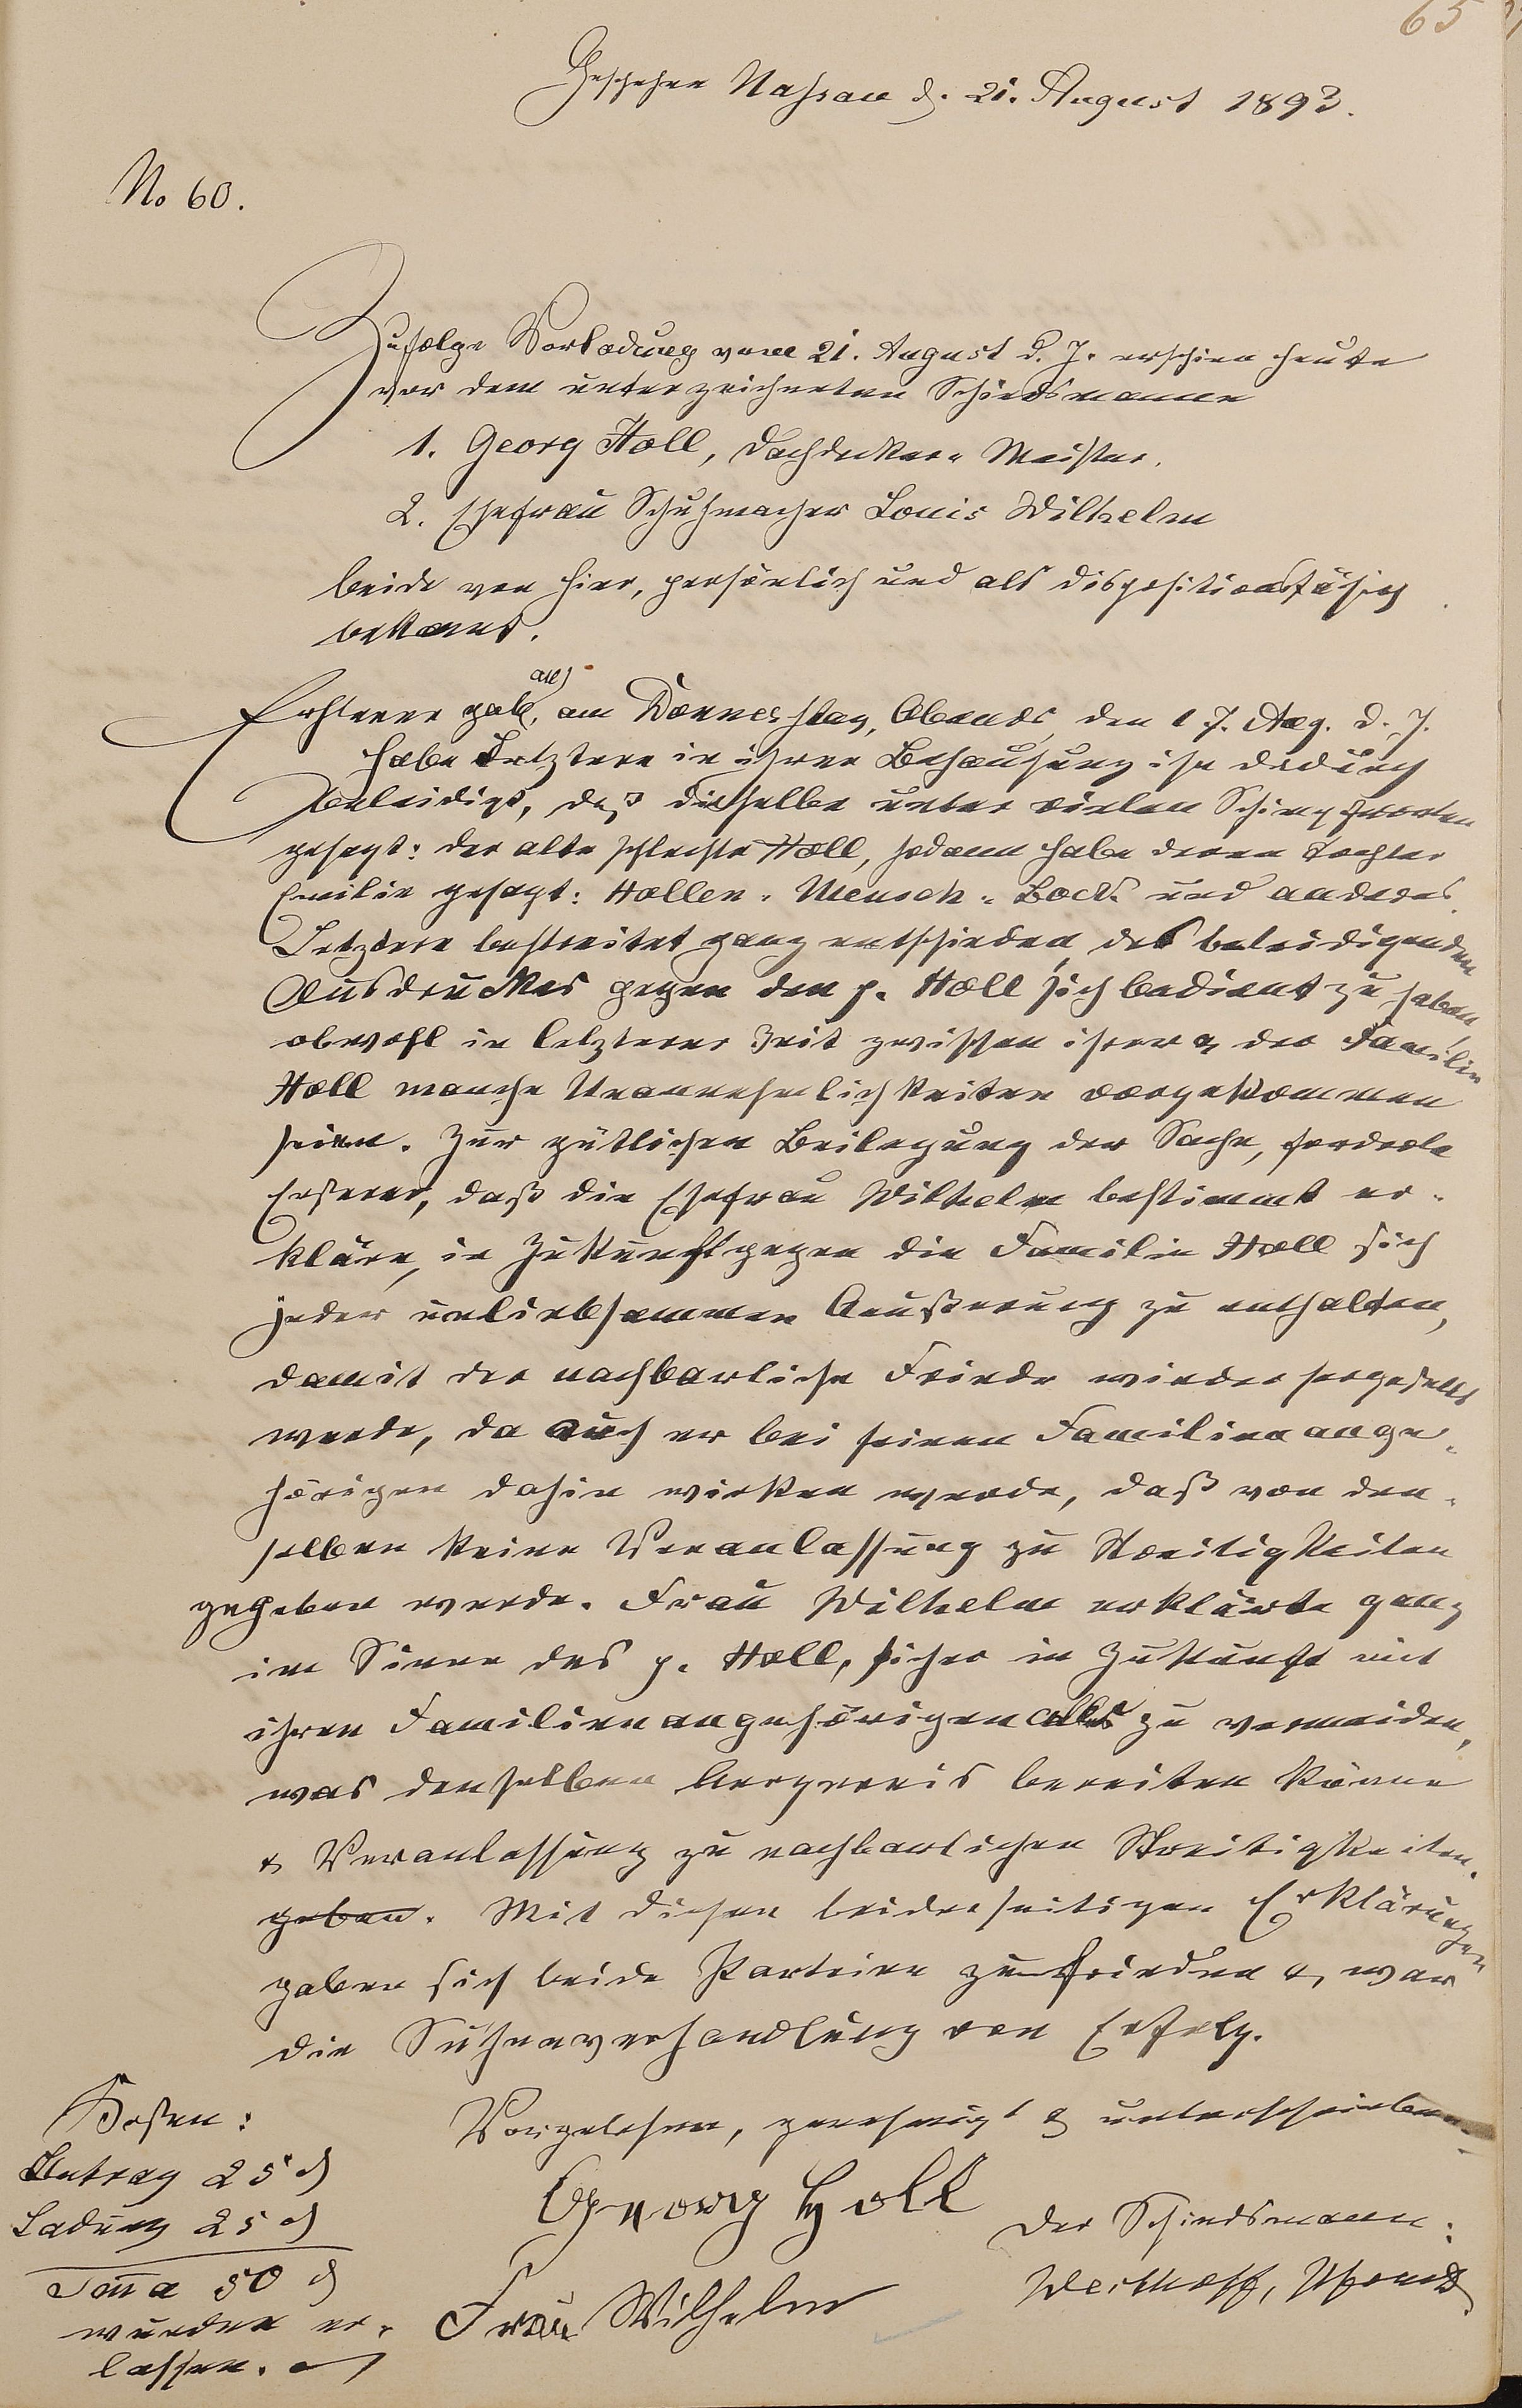 65
Geschehen Nassau d. 21. August 1893.
No 60.
Zufolge Vorladung vom 21. August d. J. erschien heute
vor dem unterzeichneten Schiedsmanne
1. Georg Holl, Dachdecker-Meister.
2. Ehefrau Schuhmacher Louis Wilhelm
beide von hier, persönlich und als dispositionsfähig
bekannt.
Ersterer gab an, am Donnerstag, Abends, den 17. Aug. d. J.
habe Letztere in ihrer Behausung ihn dadurch
beleidigt, daß dieselbe unter vielen Schimpfworten
gesagt: der alte schlechte Holl, sodann habe deren Tochter
Emilie gesagt: Hollen-Mensch-Bock und anderes.
Letztere bestreitet ganz entschieden, des beleidigenden
Ausdruckes gegen den p. Holl sich bedient zu haben
obwohl in letzterer Zeit zwischen ihrer & der Familie
Holl manche Unannehmlichkeiten vorgekommen
seien. Zur gütlichen Beilegung der Sache, forderte
Ersterer, daß die Ehefrau Wilhelm bestimmt er-
kläre, in Zukunft gegen die Familie Holl sich
jeder unliebsammen Aeußerung zu enthalten,
damit der nachbarliche Friede wieder hergestellt
werde, da auch er bei seinen Familienange-
hörigen dahin wirken werde, daß von den-
selben keine Veranlassung zu Streitigkeiten
gegeben werde. Frau Wilhelm erklärte ganz
im Sinne des p. Holl, sicher in Zukunft mit
ihren Familienangehörigen alles zu vermeiden,
was denselben Aergerniss bereiten könne
& Veranlassung zu nachbarlichen Streitigkeiten
geben. Mit diesen beiderseitigen Erklärungen
gaben sich beide Parteien zufrieden & war
die Sühneverhandlung von Erfolg.
Vorgelesen, genehmigt & unterschrieben
Georg Holl
Frau Wilhelm
Der Schiedsmann:
Kosten:
Antrag 25 ₰
Ladung 25 ₰
Sma 50 ₰
wurden er-
lassen.